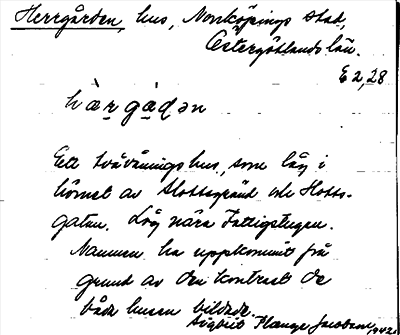 Herrgården, hus, Norrköpings stad,
Östergötlands län.
E 2,28
hærgådən
Ett tvåvåningshus, som låg i
hörnet av Slottsgränd och Slotts-
gatan. Låg nära Fattigstugan.
Namnen ha uppkommit på
grund av den kontrast de
båda husen bildade.
Sigbrit Plange Jacobson, 1942.